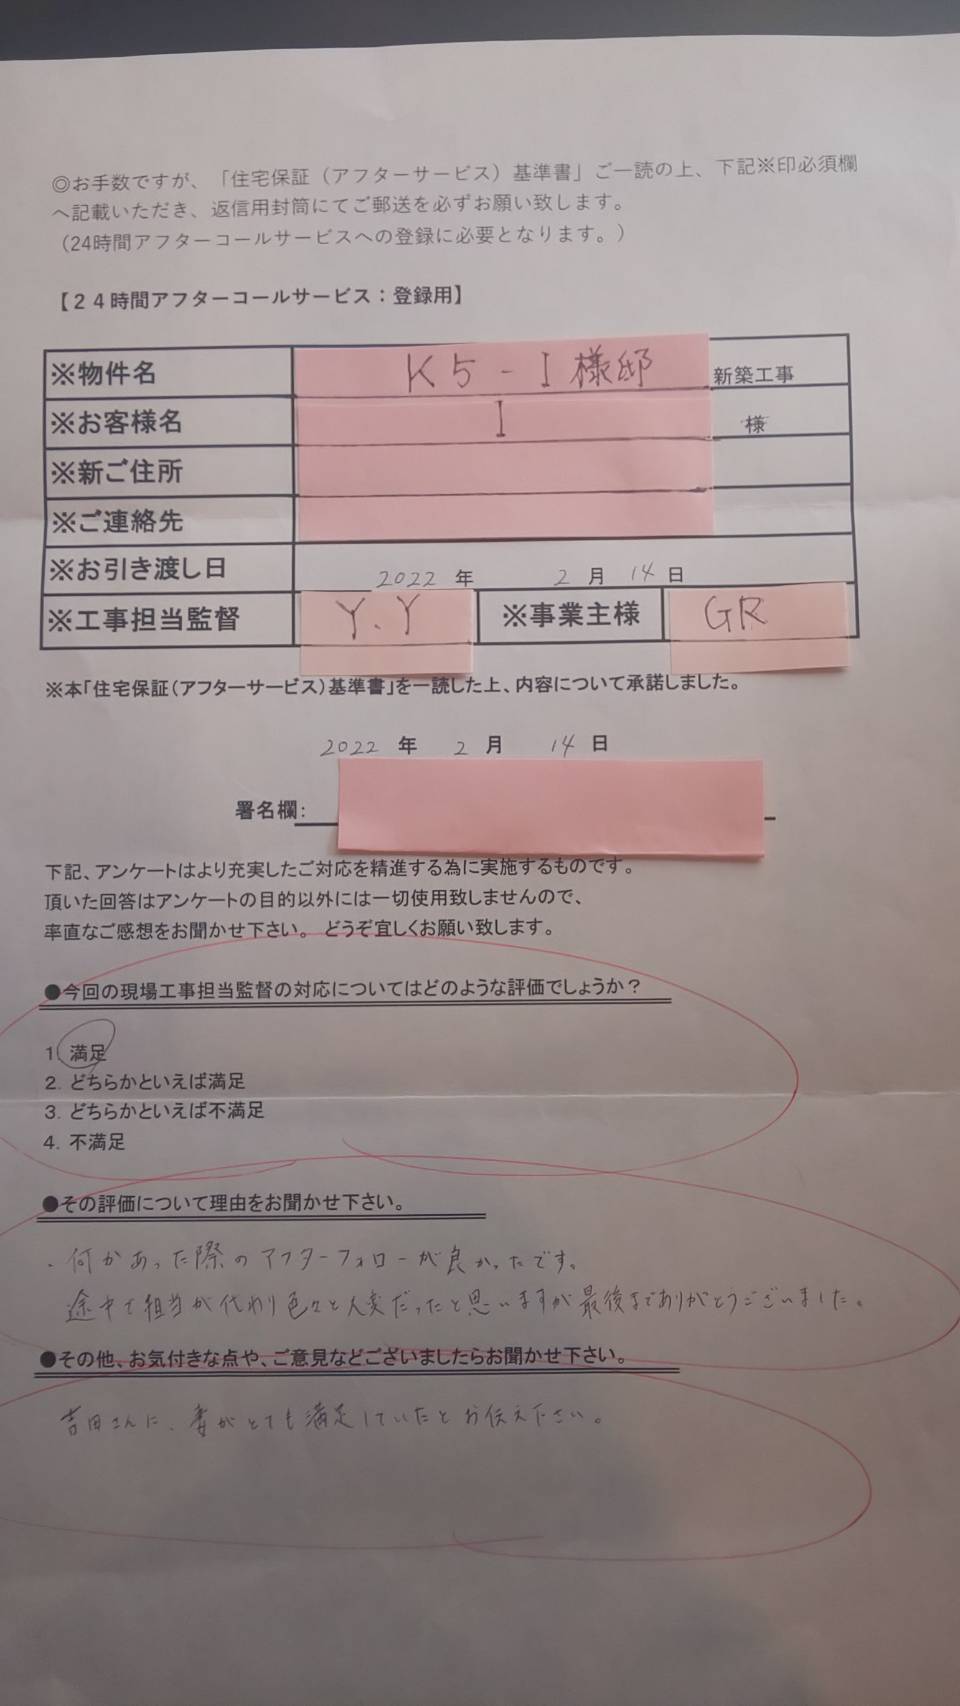 ◎お手数ですが、「住宅保証（アフターサービス）基準書」ご一読の上、下記※印必須欄
へ記載いただき、返信用封筒にてご郵送を必ずお願い致します。
（24時間アフターコールサービスへの登録に必要となります。）
【２４時間アフターコールサービス：登録用】
※物件名 K5-I様邸 新築工事
※お客様名 I 様
※新ご住所
※ご連絡先
※お引き渡し日 2022 年 2 月 14 日
※工事担当監督 Y.Y ※事業主様 GR
※本「住宅保証（アフターサービス）基準書」を一読した上、内容について承諾しました。
2022 年 2 月 14 日
署名欄：
下記、アンケートはより充実したご対応を精進する為に実施するものです。
頂いた回答はアンケートの目的以外には一切使用致しませんので、
率直なご感想をお聞かせ下さい。 どうぞ宜しくお願い致します。
●今回の現場工事担当監督の対応についてはどのような評価でしょうか？
1. 満足
2. どちらかといえば満足
3. どちらかといえば不満足
4. 不満足
●その評価について理由をお聞かせ下さい。
・何かあった際のアフターフォローが良かったです。
途中で担当が代わり色々と大変だったと思いますが最後までありがとうございました。
●その他、お気付きな点や、ご意見などございましたらお聞かせ下さい。
吉田さんに、妻がとても満足していたとお伝え下さい。